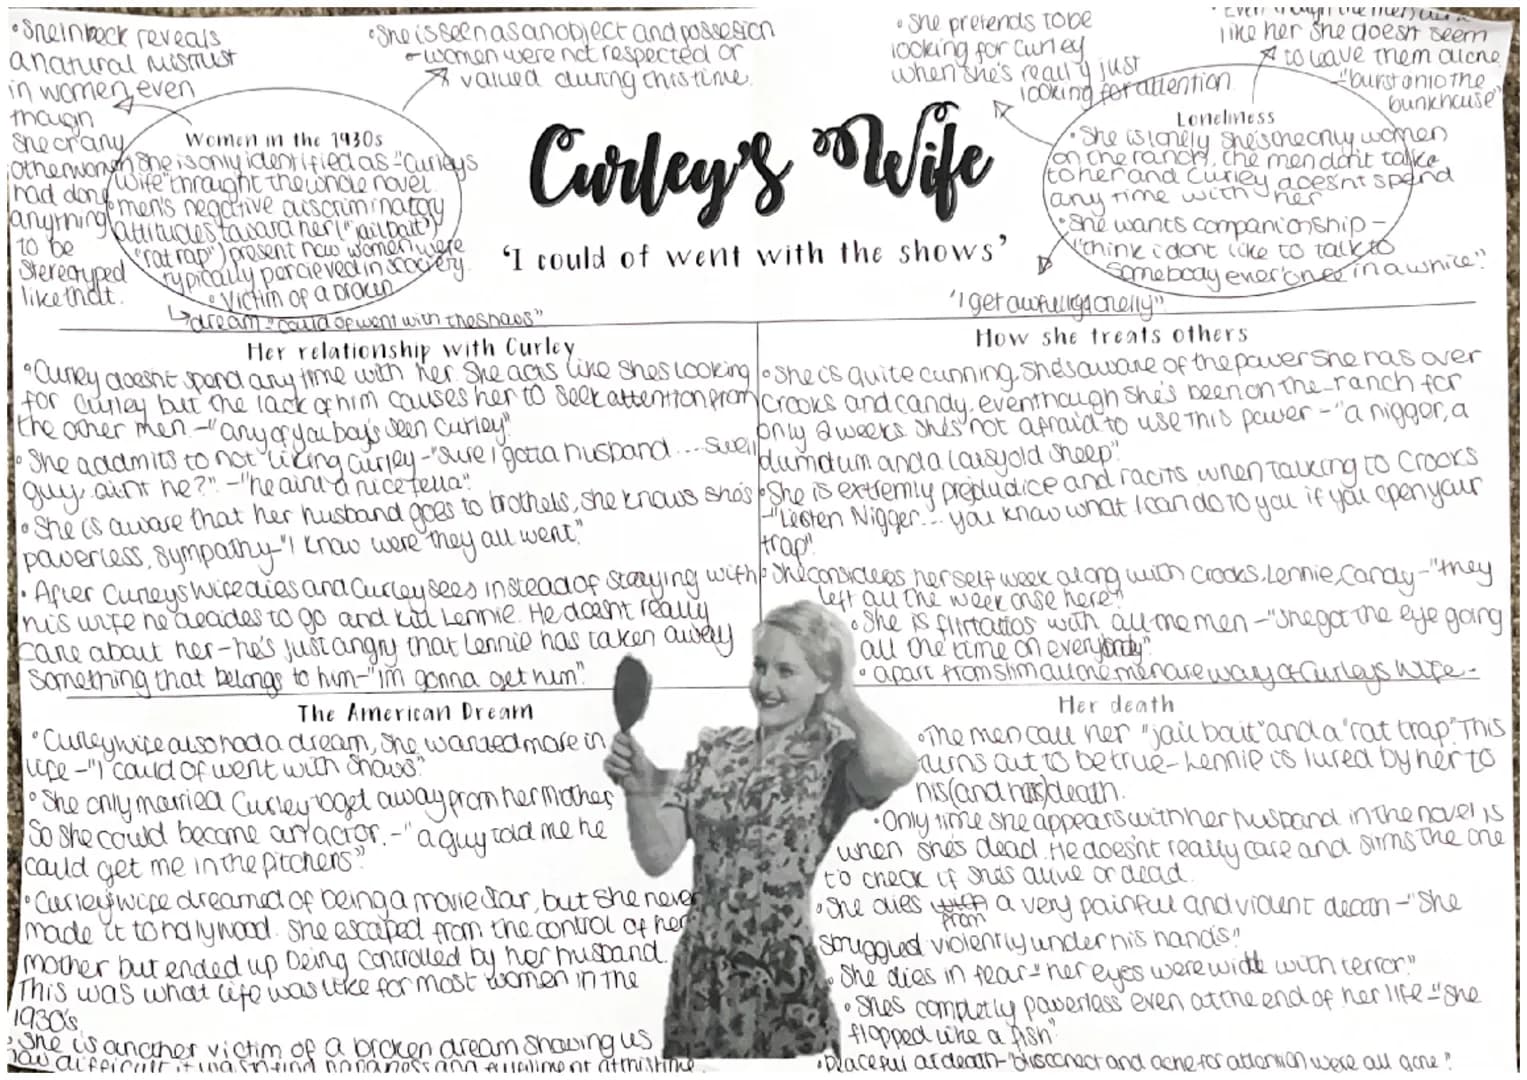 • Steinbeck reveals
a natural mistrust
in women, even
though
she or any
other woman
had done
anything
to be
stereotyped
like that.
• She is seen as an object and possesion
- women were not respected or
valued during this time.
Women in the 1930s
• She is only identified as "Curleys
Wife" throught the whole novel.
• men's negative discriminatory
attitudes toward her ("jail bait")
"rat rap") present how women were
typically percieved in society.
• Victim of a broken
dream "could of went with the shows"
Curley's Wife
'I could of went with the shows'
• She pretends to be
looking for Curley
when she's really just
looking for attention.
• Even though the men
like her she doesn't seem
to leave them alone
- "burst onto the
bunkhouse"
Loneliness
• She is lonely she's the only women
on the ranch, the men dont talke
to her and Curley doesn't spend
any time with her
• She wants companionship -
"think i dont like to talk to
somebody ever' once in a while."
"I get awfully lonely"
Her relationship with Curley
• Curley doesnt spend any time with her. She acts like shes looking
for Curley but the lack of him causes her to seek attention from
the other men. - "any of you boys seen Curley"
• She addmits to not liking Curley - "sure I gotta husband .... swell
guy, ain't he?" - "he aint a nice fella".
• She is aware that her husband goes to brothels, she knows she's
powerless, sympathy - "I know were they all went."
• After Curleys wife dies and Curley sees instead of staying with
his wife he decides to go and kill Lennie. He doesnt really
care about her - he's just angry that Lennie has taken away
something that belongs to him - "im gonna get him".
How she treats others
• She is quite cunning, She's aware of the power she has over
crooks and candy, eventhough she's been on the ranch for
only 2 weeks she's not afraid to use this power - "a nigger, a
dumdum and a lousy old sheep"
• She is extremly prejudice and racits when talking to Crooks
- "Listen Nigger... you know what I can do to you if you open your
trap".
• She considers herself week along with Crooks, Lennie, Candy - "they
left all the week onse here."
• She is flirtatios with all the men - "She got the eye going
all the time on everybody"
• apart from slim all the men are way of Curleys wife -
The American Dream
• Curley wife also had a dream, she wanted more in
life - "I could of went with shows".
• She only married Curley to get away from her mother
so she could become an actor. - "a guy told me he
could get me in the pitchers"
• Curley wife dreamed of being a movie star, but she never
made it to hollywood. She escaped from the control of her
mother but ended up being controlled by her husband.
This was what life was like for most women in the
1930's.
• She is another victim of a broken dream showing us
how difficult it was to find happiness and fulfilment at this time
Her death
• The men call her "jail bait" and a "rat trap". This
turns out to be true - Lennie is lured by her to
his (and her) death.
• Only time she appears with her husband in the novel is
when she's dead. He doesn't really care and slims the one
to check if she's alive or dead.
• She dies from a very painful and violent death - "She
struggled violently under his hands".
• She dies in fear - "her eyes were wide with terror."
• Shes completly powerless even at the end of her life - "She
flopped like a fish"
• Peaceful at death - "discontent and ache for attention were all gone".